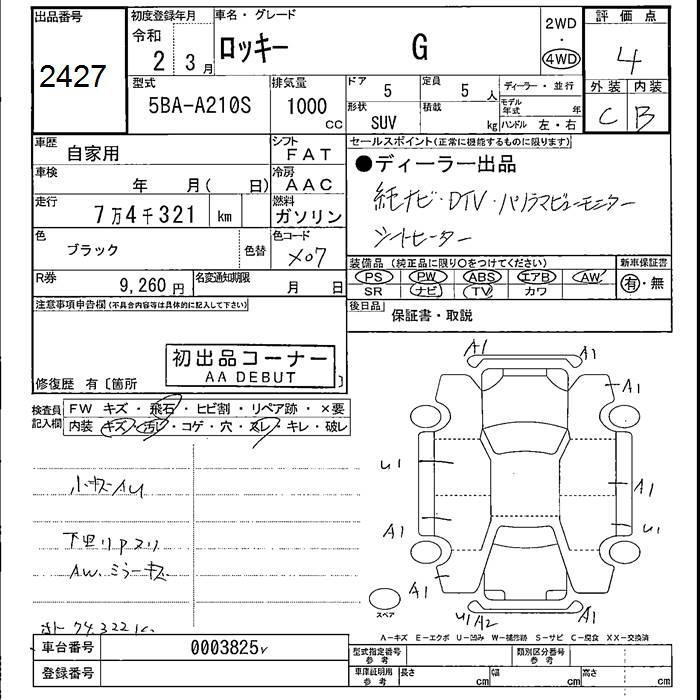 出品番号
2427
初度登録年月
令和
2 3月
車名・グレード
ロッキー G
2WD
・
4WD
評価点
4
外装 内装
C B
型式
5BA-A210S
排気量
1000
cc
ドア
5
定員
5 人
ディーラー・並行
形状
SUV
積載
kg
モデル年式 年
ハンドル 左・右
車歴
自家用
シフト
FAT
車検
年 月( 日)
冷房
AAC
走行
7万4千321 km
燃料
ガソリン
色
ブラック
色替
色コード
X07
R券
9,260円
名変通知期限
月 日
セールスポイント(正常に機能するものに限ります)
●ディーラー出品
純ナビ・DTV・パノラマビューモニター
シートヒーター
装備品(純正品に限り○をつけてください)
PS PW ABS エアB AW
SR ナビ TV カワ
新車保証書
有・無
後日品
保証書・取説
注意事項申告欄(不具合内容等は具体的に記入して下さい)
初出品コーナー
AA DEBUT
修復歴 有〔箇所 〕
検査員記入欄
FW キズ・飛石・ヒビ割・リペア跡・×要
内装 キズ・汚レ・コゲ・穴・スレ・キレ・破レ
小キズAU
下回りアスリ
AW、ミラーキズ
74,322
A1 A1
A1
U1
A1
A1
U1
A1
U1 A2 A1
スペア
A-キズ E-エクボ U-凹み W-補修跡 S-サビ C-腐食 XX-交換済
車台番号
0003825
登録番号
型式指定番号
参考
類別区分番号
参考
車庫証明用
参考
長さ cm
幅 cm
高さ cm